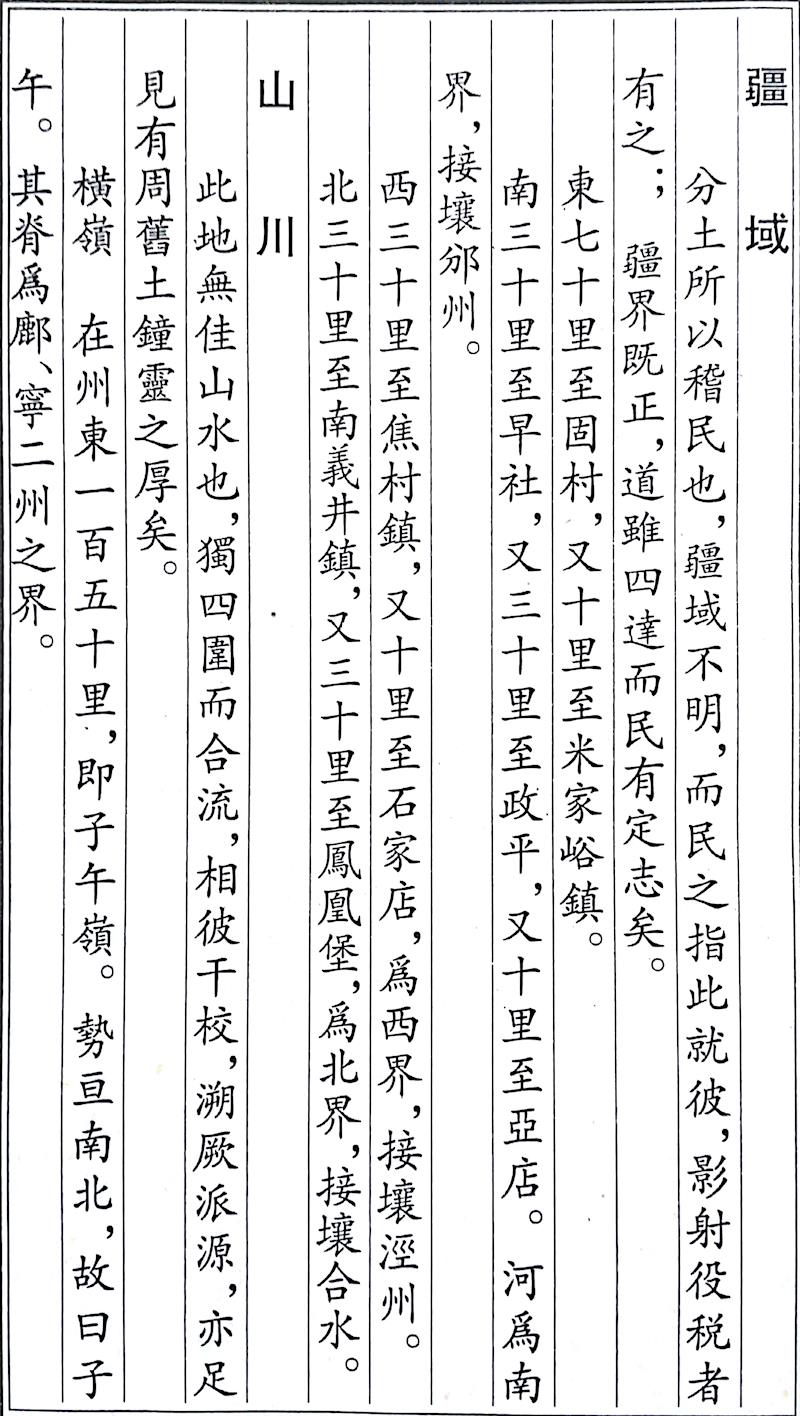 疆域
分土所以稽民也，疆域不明，而民之指此就彼，影射役税者
有之；疆界既正，道雖四達而民有定志矣。
東七十里至固村，又十里至米家峪鎮。
南三十里至早社，又三十里至政平，又十里至亞店。河爲南
界，接壤邠州。
西三十里至焦村鎮，又十里至石家店，爲西界，接壤涇州。
北三十里至南義井鎮，又三十里至鳳凰堡，爲北界，接壤合水。
山川
此地無佳山水也，獨四圍而合流，相彼干校，溯厥派源，亦足
見有周舊土鐘靈之厚矣。
橫嶺　在州東一百五十里，即子午嶺。勢亘南北，故曰子
午。其脊爲鄜、寧二州之界。